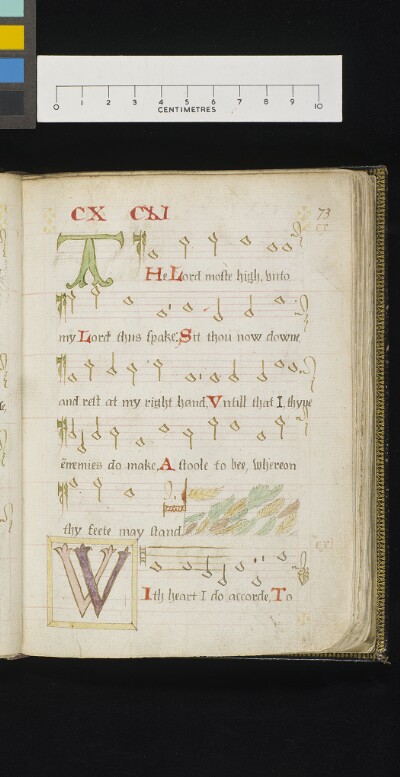 0 1 2 3 4 5 6 7 8 9 10
CENTIMETRES
CX CXI
73
CX
THe Lord moste high, vnto
my Lord thus spake, Sit thou now downe,
and rest at my right hand, Vntill that I thyne
enemies do make, A stoole to bee, whereon
thy feete may stand.
CXI
With heart I do accorde, To